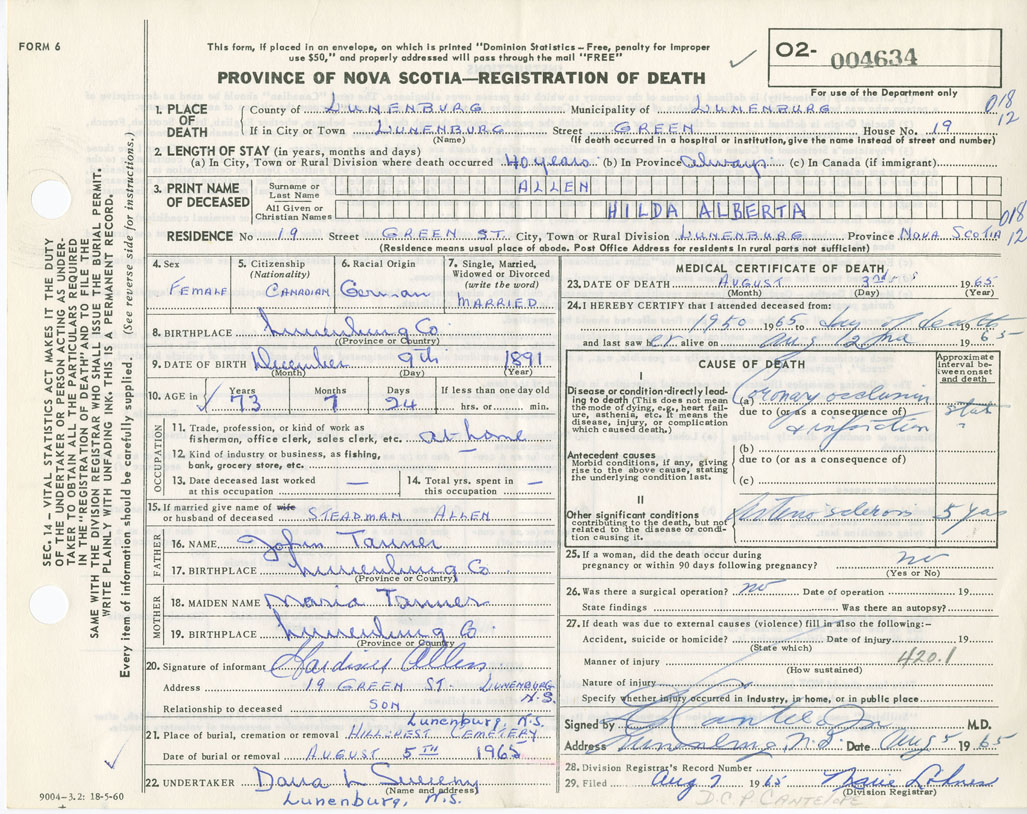 FORM 6
This form, if placed in an envelope, on which is printed "Dominion Statistics – Free, penalty for improper
use $50," and properly addressed will pass through the mail "FREE"
O2- 004634
PROVINCE OF NOVA SCOTIA—REGISTRATION OF DEATH
For use of the Department only
1. PLACE OF DEATH County of LUNENBURG Municipality of LUNENBURG 018 12
If in City or Town LUNENBURG Street GREEN House No. 19
(Name) (If death occurred in a hospital or institution, give the name instead of street and number)
2. LENGTH OF STAY (in years, months and days)
(a) In City, Town or Rural Division where death occurred 40 years (b) In Province always (c) In Canada (if immigrant)
3. PRINT NAME OF DECEASED Surname or Last Name ALLEN
All Given or Christian Names HILDA ALBERTA 018 12
RESIDENCE No 19 Street GREEN ST. City, Town or Rural Division LUNENBURG Province NOVA SCOTIA
(Residence means usual place of abode. Post Office Address for residents in rural parts not sufficient)
SEC. 14 – VITAL STATISTICS ACT MAKES IT THE DUTY
OF THE UNDERTAKER OR PERSON ACTING AS UNDER-
TAKER TO OBTAIN ALL THE PARTICULARS REQUIRED
IN THE "REGISTRATION OF DEATH" AND FILE THE
SAME WITH THE DIVISION REGISTRAR WHO SHALL ISSUE THE BURIAL PERMIT.
WRITE PLAINLY WITH UNFADING INK. THIS IS A PERMANENT RECORD.
Every item of information should be carefully supplied. (See reverse side for instructions.)
4. Sex FEMALE
5. Citizenship (Nationality) CANADIAN
6. Racial Origin German
7. Single, Married, Widowed or Divorced (write the word) MARRIED
8. BIRTHPLACE Lunenburg Co
(Province or Country)
9. DATE OF BIRTH December 9th 1891
(Month) (Day) (Year)
10. AGE in Years 73 Months 7 Days 24 If less than one day old hrs. or min.
OCCUPATION
11. Trade, profession, or kind of work as
fisherman, office clerk, sales clerk, etc. at home
12. Kind of industry or business, as fishing,
bank, grocery store, etc. —
13. Date deceased last worked at this occupation —
14. Total yrs. spent in this occupation —
15. If married give name of wife
or husband of deceased STEADMAN ALLEN
FATHER
16. NAME John Tanner
17. BIRTHPLACE Lunenburg Co
(Province or Country)
MOTHER
18. MAIDEN NAME Maria Tanner
19. BIRTHPLACE Lunenburg Co.
(Province or Country)
20. Signature of informant Allen
Address 19 GREEN ST. LUNENBURG N.S.
Relationship to deceased SON
Lunenburg, N.S.
21. Place of burial, cremation or removal HILLCREST CEMETERY
Date of burial or removal AUGUST 5TH 1965
22. UNDERTAKER Dana L Sweeny
(Name and address)
Lunenburg, N.S.
9004-3.2: 18-5-60
MEDICAL CERTIFICATE OF DEATH
23. DATE OF DEATH AUGUST 3rd 1965
(Month) (Day) (Year)
24. I HEREBY CERTIFY that I attended deceased from:
1950 1965 to day of death 19
and last saw er alive on Aug 2nd 1965
CAUSE OF DEATH
Approximate interval between onset and death
I
Disease or condition directly leading to death (This does not mean
the mode of dying, e.g., heart failure, asthenia, etc. It means the
disease, injury, or complication which caused death.)
(a) Coronary occlusion
due to (or as a consequence of)
& infarction
(b)
due to (or as a consequence of)
(c)
Antecedent causes
Morbid conditions, if any, giving
rise to the above cause, stating
the underlying condition last.
II
Other significant conditions
contributing to the death, but not
related to the disease or condition
causing it.
Arteriosclerosis 5 yrs
25. If a woman, did the death occur during
pregnancy or within 90 days following pregnancy? no
(Yes or No)
26. Was there a surgical operation? no Date of operation 19
State findings Was there an autopsy?
27. If death was due to external causes (violence) fill in also the following:-
Accident, suicide or homicide? Date of injury 19
(State which)
Manner of injury 420.1
(How sustained)
Nature of injury
Specify whether injury occurred in Industry, in home, or in public place
Signed by M.D.
Address Lunenburg N.S. Date Aug 5 1965
28. Division Registrar's Record Number
29. Filed Aug 7 1965
(Division Registrar)
D.C.P CANTELOPE